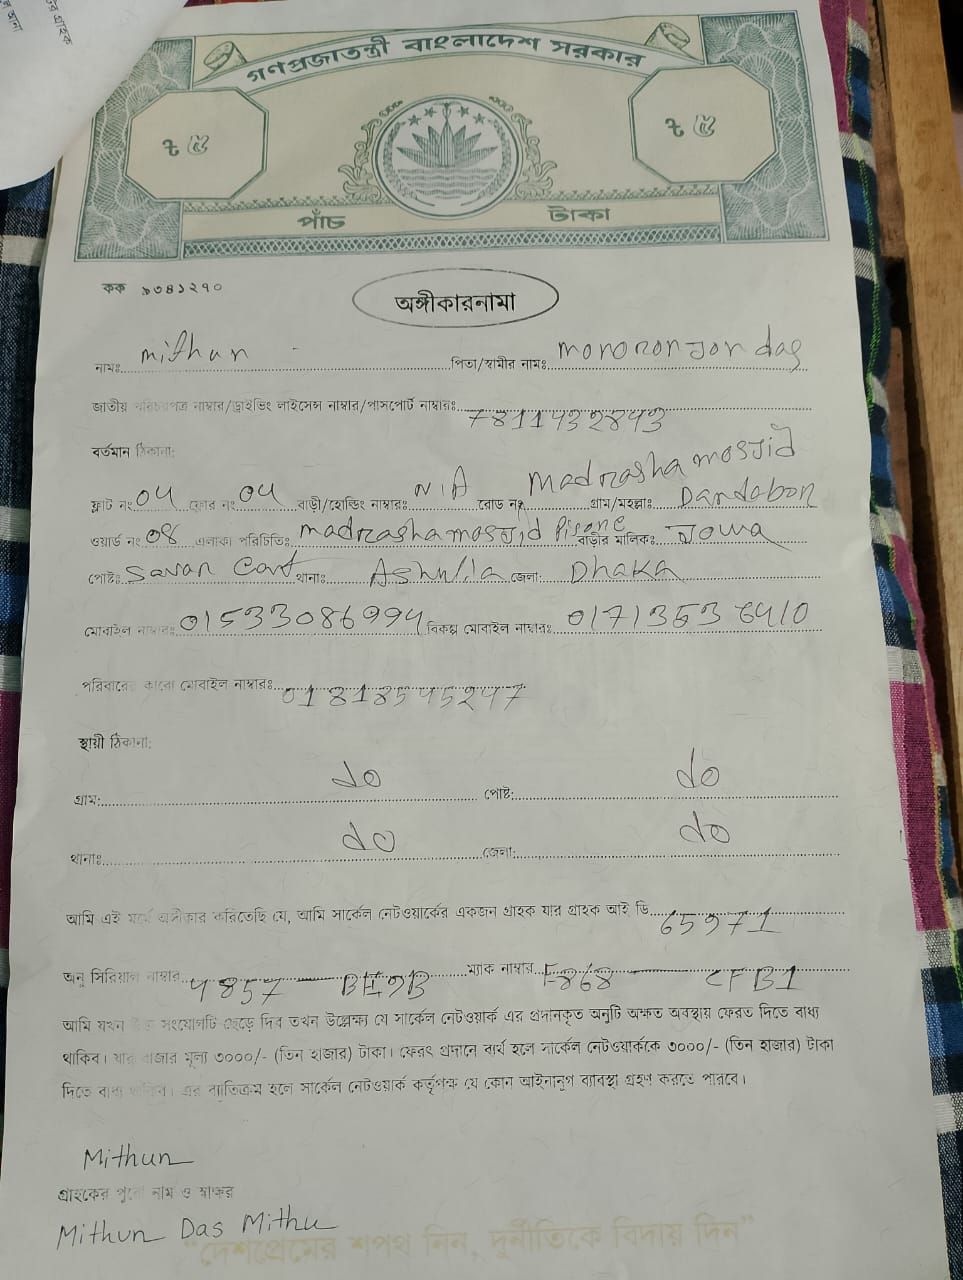 গণপ্রজাতন্ত্রী বাংলাদেশ সরকার
৳ ৫ ৳ ৫
পাঁচ টাকা
কক ৯৩৪১২৭০
অঙ্গীকারনামা
নামঃ mithun পিতা/স্বামীর নামঃ monoronjon das
জাতীয় পরিচয়পত্র নাম্বার/ড্রাইভিং লাইসেন্স নাম্বার/পাসপোর্ট নাম্বারঃ 7811432843
বর্তমান ঠিকানা:
ফ্লাট নং 04 ফ্লোর নং 04 বাড়ী/হোল্ডিং নাম্বারঃ N/A রোড নং madrasha mosjid গ্রাম/মহল্লাঃ Dandabor
ওয়ার্ড নং 08 এলাকা পরিচিতিঃ madrasha mosjid বাড়ীর মালিকঃ
পোষ্টঃ Savar Cant থানাঃ Ashulia জেলা: Dhaka
মোবাইল নাম্বারঃ 01533086994 বিকল্প মোবাইল নাম্বারঃ 01713536410
পরিবারের কারো মোবাইল নাম্বারঃ 01818545247
স্থায়ী ঠিকানা:
গ্রাম: do পোষ্ট: do
থানাঃ do জেলা: do
আমি এই মর্মে অঙ্গীকার করিতেছি যে, আমি সার্কেল নেটওয়ার্কের একজন গ্রাহক যার গ্রাহক আই ডি 65971
অনু সিরিয়াল নাম্বার 4857 — BE9B ম্যাক নাম্বার F868 — CFB1
আমি যখন উক্ত সংযোগটি ছেড়ে দিব তখন উল্লেক্ষ্য যে সার্কেল নেটওয়ার্ক এর প্রদানকৃত অনুটি অক্ষত অবস্থায় ফেরত দিতে বাধ্য
থাকিব। যার বাজার মূল্য ৩০০০/- (তিন হাজার) টাকা। ফেরৎ প্রদানে ব্যর্থ হলে সার্কেল নেটওয়ার্ককে ৩০০০/- (তিন হাজার) টাকা
দিতে বাধ্য থাকিব। এর ব্যতিক্রম হলে সার্কেল নেটওয়ার্ক কর্তৃপক্ষ যে কোন আইনানুগ ব্যাবস্থা গ্রহণ করতে পারবে।
Mithun
গ্রাহকের পুরো নাম ও স্বাক্ষর
Mithun Das Mithu
"দেশপ্রেমের শপথ নিন, দুর্নীতিকে বিদায় দিন"